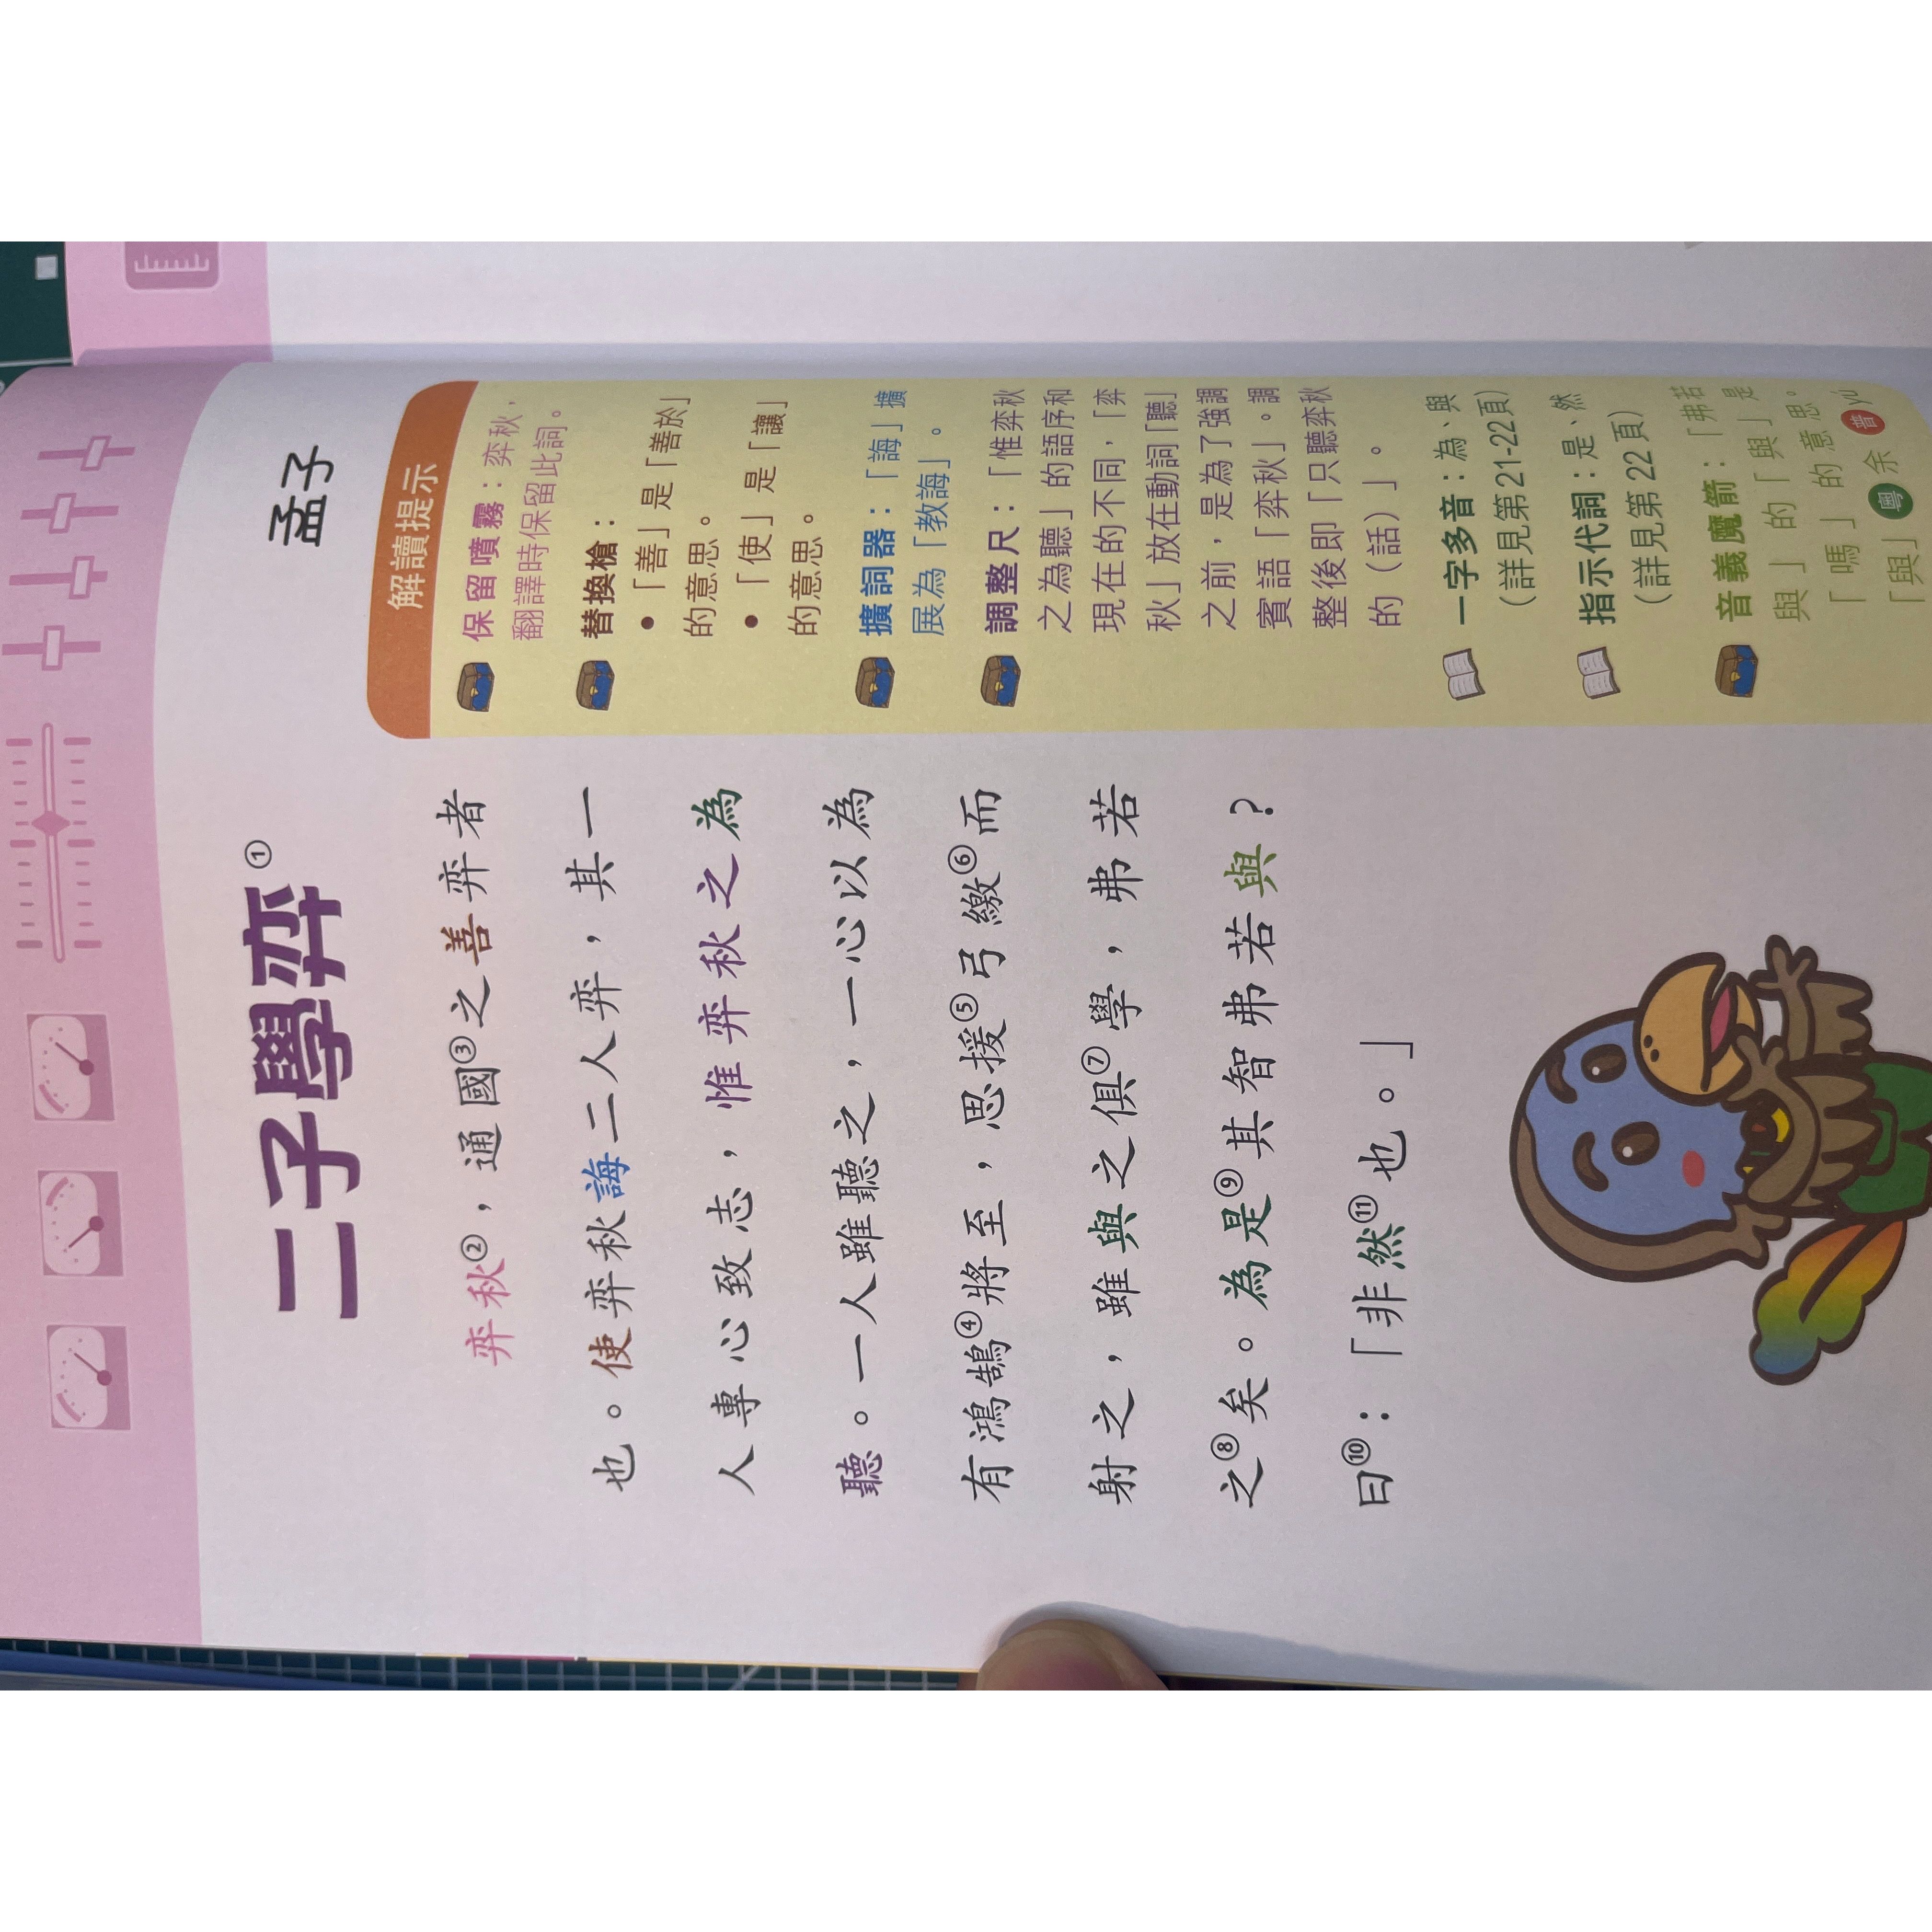 二子學弈①
孟子
弈秋②，通國③之善弈者
也。使弈秋誨二人弈，其一
人專心致志，惟弈秋之為
聽。一人雖聽之，一心以為
有鴻鵠④將至，思援⑤弓繳⑥而
射之，雖與之俱⑦學，弗若
之⑧矣。為是⑨其智弗若與？
曰⑩：「非然⑪也。」
解讀提示
保留噴霧：弈秋，
翻譯時保留此詞。
替換槍：
• 「善」是「善於」
的意思。
• 「使」是「讓」
的意思。
擴詞器：「誨」擴
展為「教誨」。
調整尺：「惟弈秋
之為聽」的語序和
現在的不同，「弈
秋」放在動詞「聽」
之前，是為了強調
賓語「弈秋」。調
整後即「只聽弈秋
的（話）」。
一字多音：為、與
（詳見第21-22頁）
指示代詞：是、然
（詳見第 22 頁）
音義魔箭：「弗若
與」的「與」是
「嗎」的意思。
「與」粵余普yú